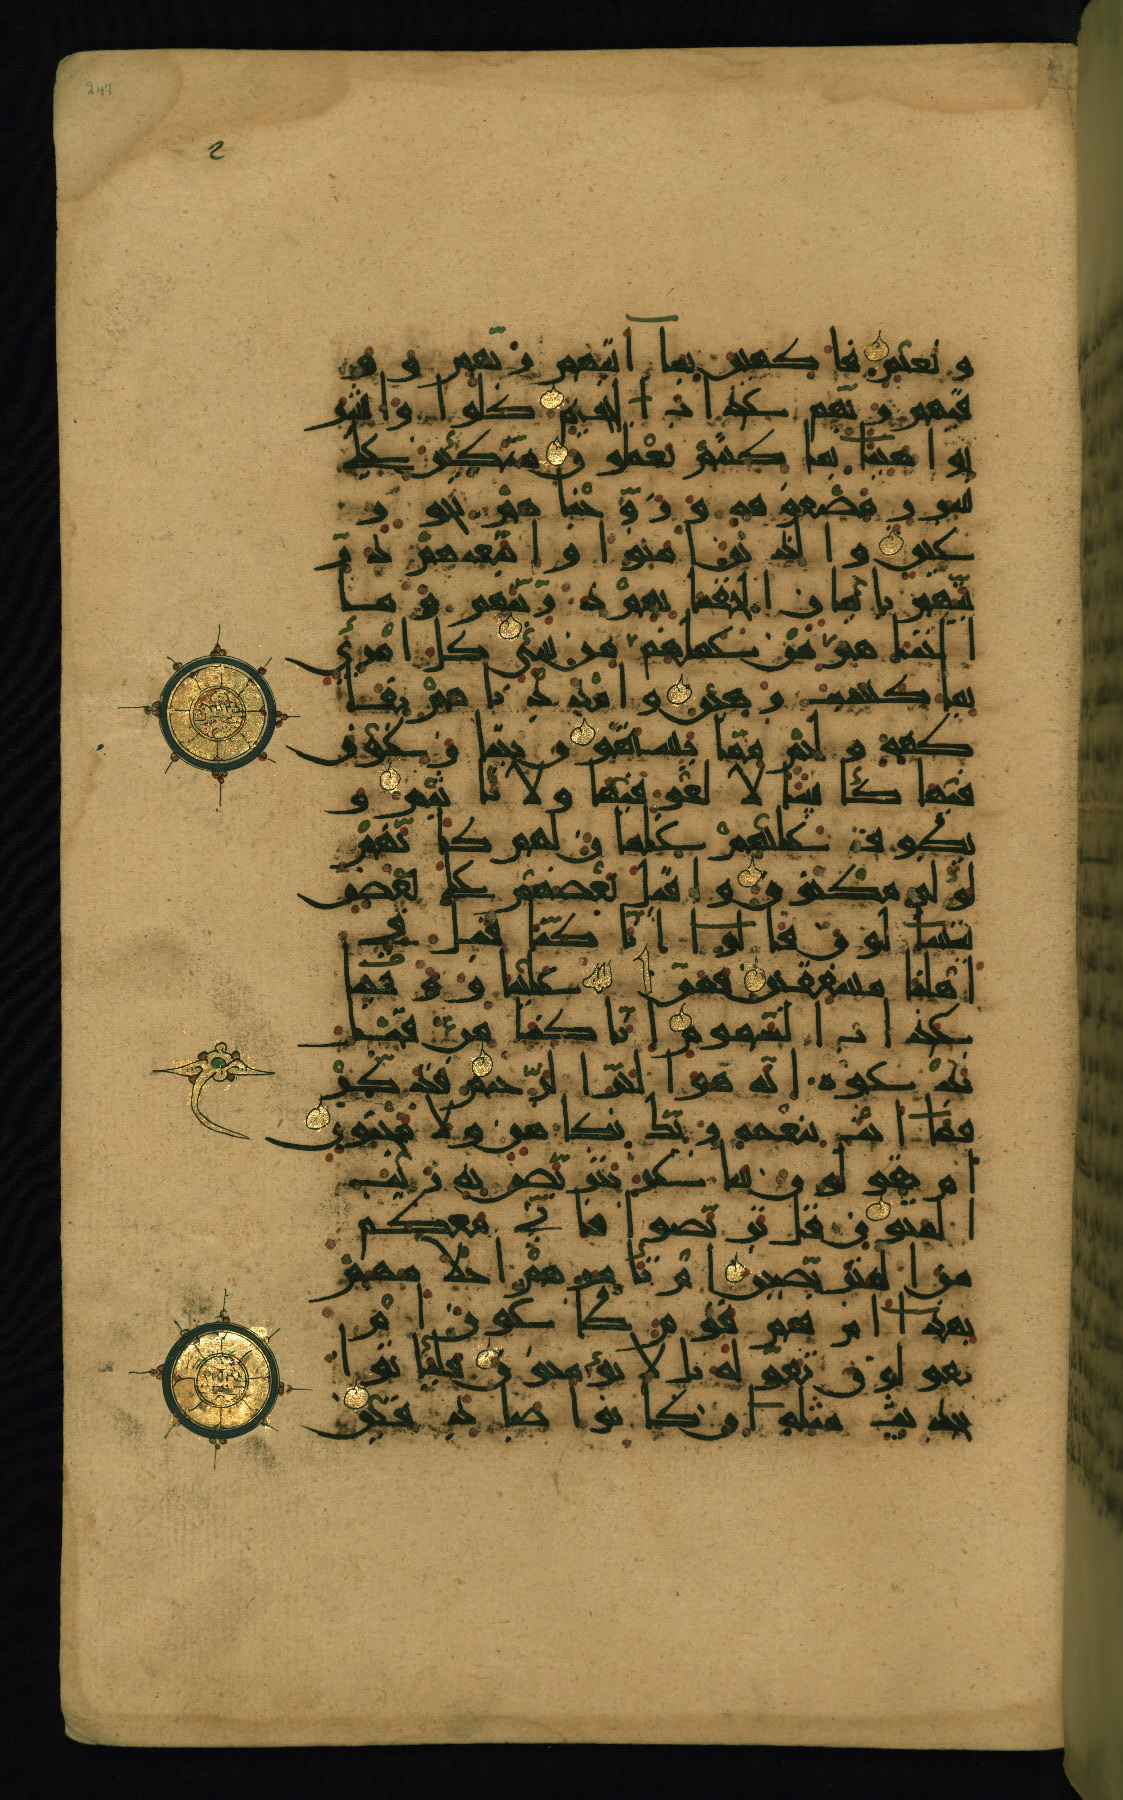 247
2
و نعيم فاكهين بما اتيهم ربهم و و
قيهم ربهم عذاب الجحيم كلوا واشر
بوا هنيئا بما كنتم تعملون متكئين على
سرر مصفوفة وزوجناهم بحور
عين والذين امنوا واتبعتهم ذر
يتهم بايمان الحقنا بهم ذريتهم وما
التناهم من عملهم من شيء كل امرئ
بما كسب رهين وامددناهم بفا
كهة ولحم مما يشتهون يتنازعون
فيها كأسا لا لغو فيها ولا تأثيم و
يطوف عليهم غلمان لهم كانهم
لؤلؤ مكنون واقبل بعضهم على بعض
يتساءلون قالوا انا كنا قبل في
اهلنا مشفقين فمن الله علينا ووقينا
عذاب السموم انا كنا من قبل
ندعوه انه هو البر الرحيم فذكر
فما انت بنعمه ربك بكاهن ولا مجنون
ام يقولون شاعر نتربص به ريب
المنون قل تربصوا فاني معكم
من المتربصين ام تأمرهم احلامهم
بهذا ام هم قوم طاغون ام
يقولون تقوله بل لا يؤمنون فليأتوا
بحديث مثله ان كانوا صادقين